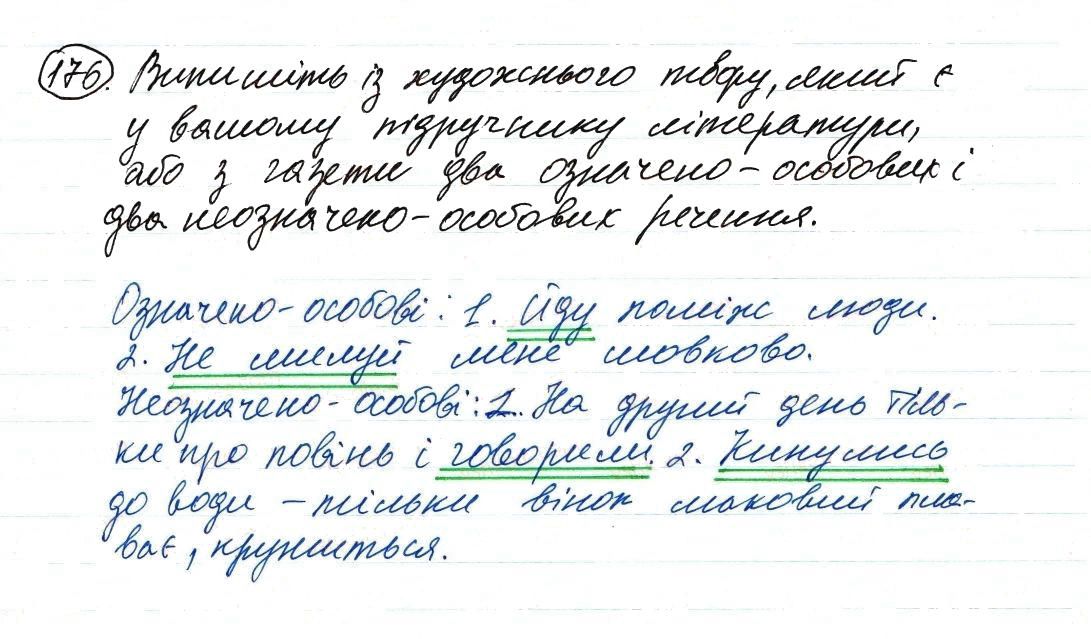 176. Випишіть із художнього твору, який є
у вашому підручнику літератури,
або з газети два означено-особових і
два неозначено-особових речення.
Означено-особові: 1. Йду поміж люди.
2. Не милуй мене шовково.
Неозначено-особові: 1. На другий день тіль-
ки про повінь і говорили. 2. Кинулись
до води – тільки вінок маковий пла-
ває, кружиться.